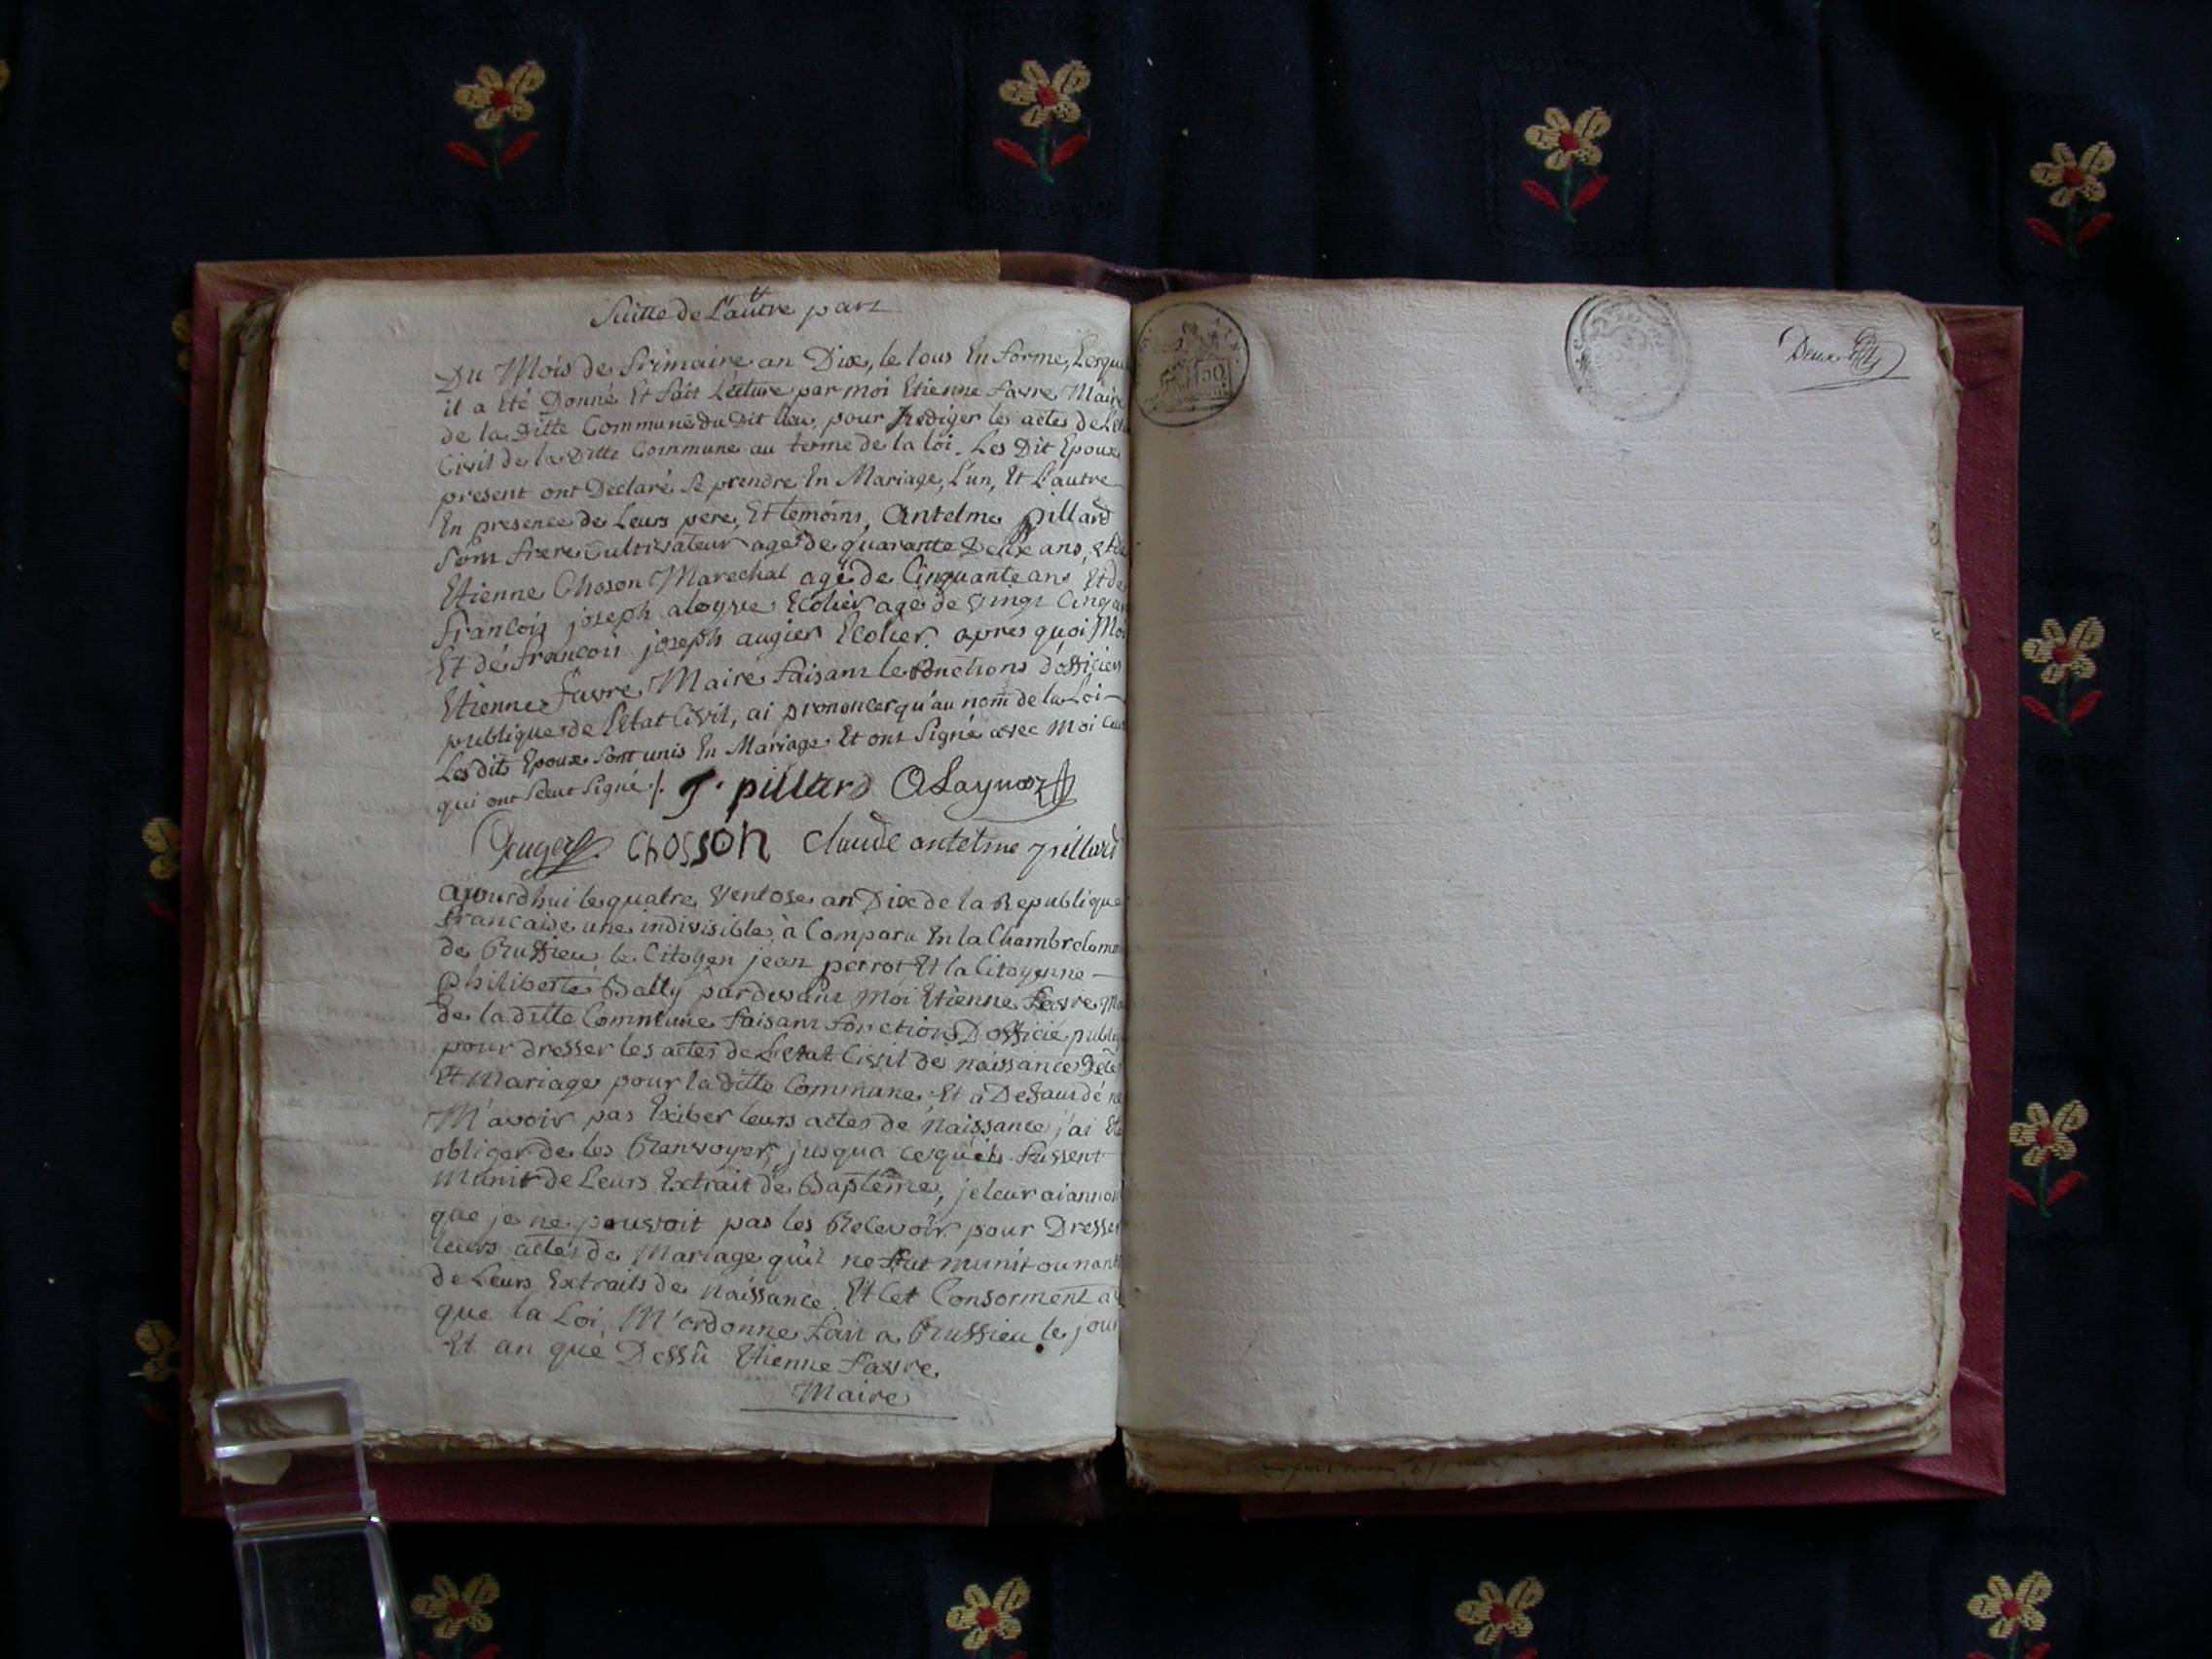 Suitte de L'autre part
Du Mois de frimaire an Dix, le tous En forme, Lesque
il a Eté Donné Et fait Lecture par moi Etienne favre Maire
de la Ditte Commune du Dit lieu pour Rediger les actes de L'et
Civil de la Ditte Commune au terme de la loi. Les Dit Epoux
present ont Declaré Se prendre En Mariage, L'un, Et L'autre
En presence de Leurs pere, Et temoins, Antelme pillard
Son frere Cultivateur agé de quarante Deux ans, et de
Etienne Choson Marechal agé de Cinquante ans Et de
françois joseph Ecolier agé de vingt Cinq an
Et dé françois joseph augier Ecolier. apres quoi Moi
Etienne favre Maire faisant le fonctions d'officier
publique de l'Etat Civil, ai prononcer qu'au nom de la Loi
Les dits Epoux sont unis En Mariage Et ont Signé avec Moi ceux
qui ont Seut Signé /. J. pillard
Chosson Claude antelme pillard
ajourdhui le quatre Ventose an Dix de la Republique
francaise une indivisible, à Comparu En la Chambre Comm
de Brussieu le Citoyen jean perrot Et la Citoyenne
Philiberte Bally pardevant Moi Etienne favre Ma
de la ditte Commune faisant fonctions D'officié public
pour Dresser les actes de L'etat Civil de naissance Décé
Et Mariage pour la ditte Commune, Et a Defaut dé ne
M'avoir pas Exiber leurs actes de Naissance j'ai Eté
obliger de les Renvoyer, jusqua ce qu'els fussent
Munit de Leurs Extrait de Baptême, je leur ai annon
que je ne pouvoit pas les Recevoir pour Dresser
leurs actes de Mariage qu'il ne fut munit ou nant
de Leurs Extraits de naissance. Et Cet Conforment a
que la Loi M'ordonne fait a Brussieu le jour
Et an que Dessû Etienne favre.
Maire
50
Deux